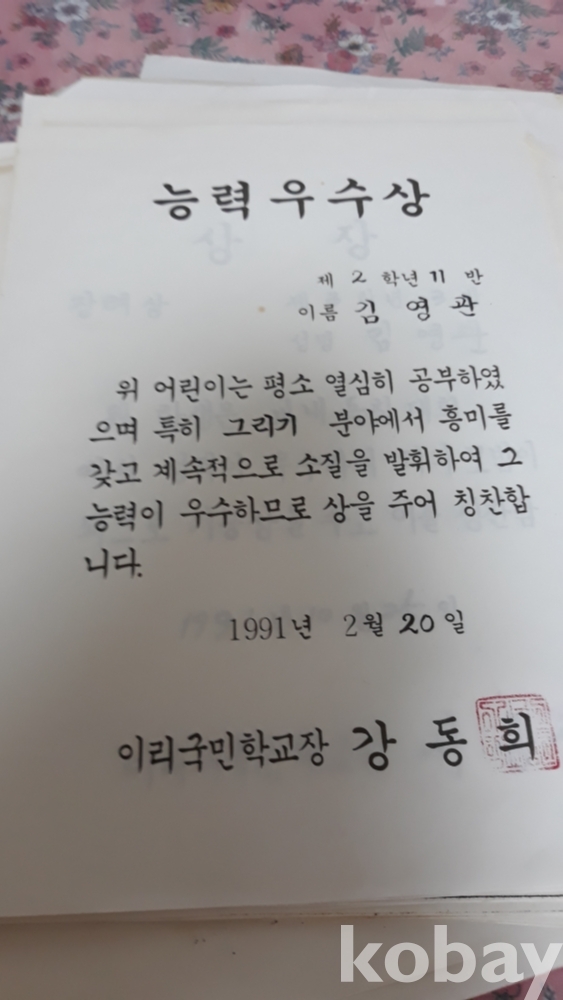 능력우수상
제 2 학년 11 반
이름 김 영 관
위 어린이는 평소 열심히 공부하였
으며 특히 그리기 분야에서 흥미를
갖고 계속적으로 소질을 발휘하여 그
능력이 우수하므로 상을 주어 칭찬합
니다.
1991년 2월 20일
이리국민학교장 강 동 희
kobay